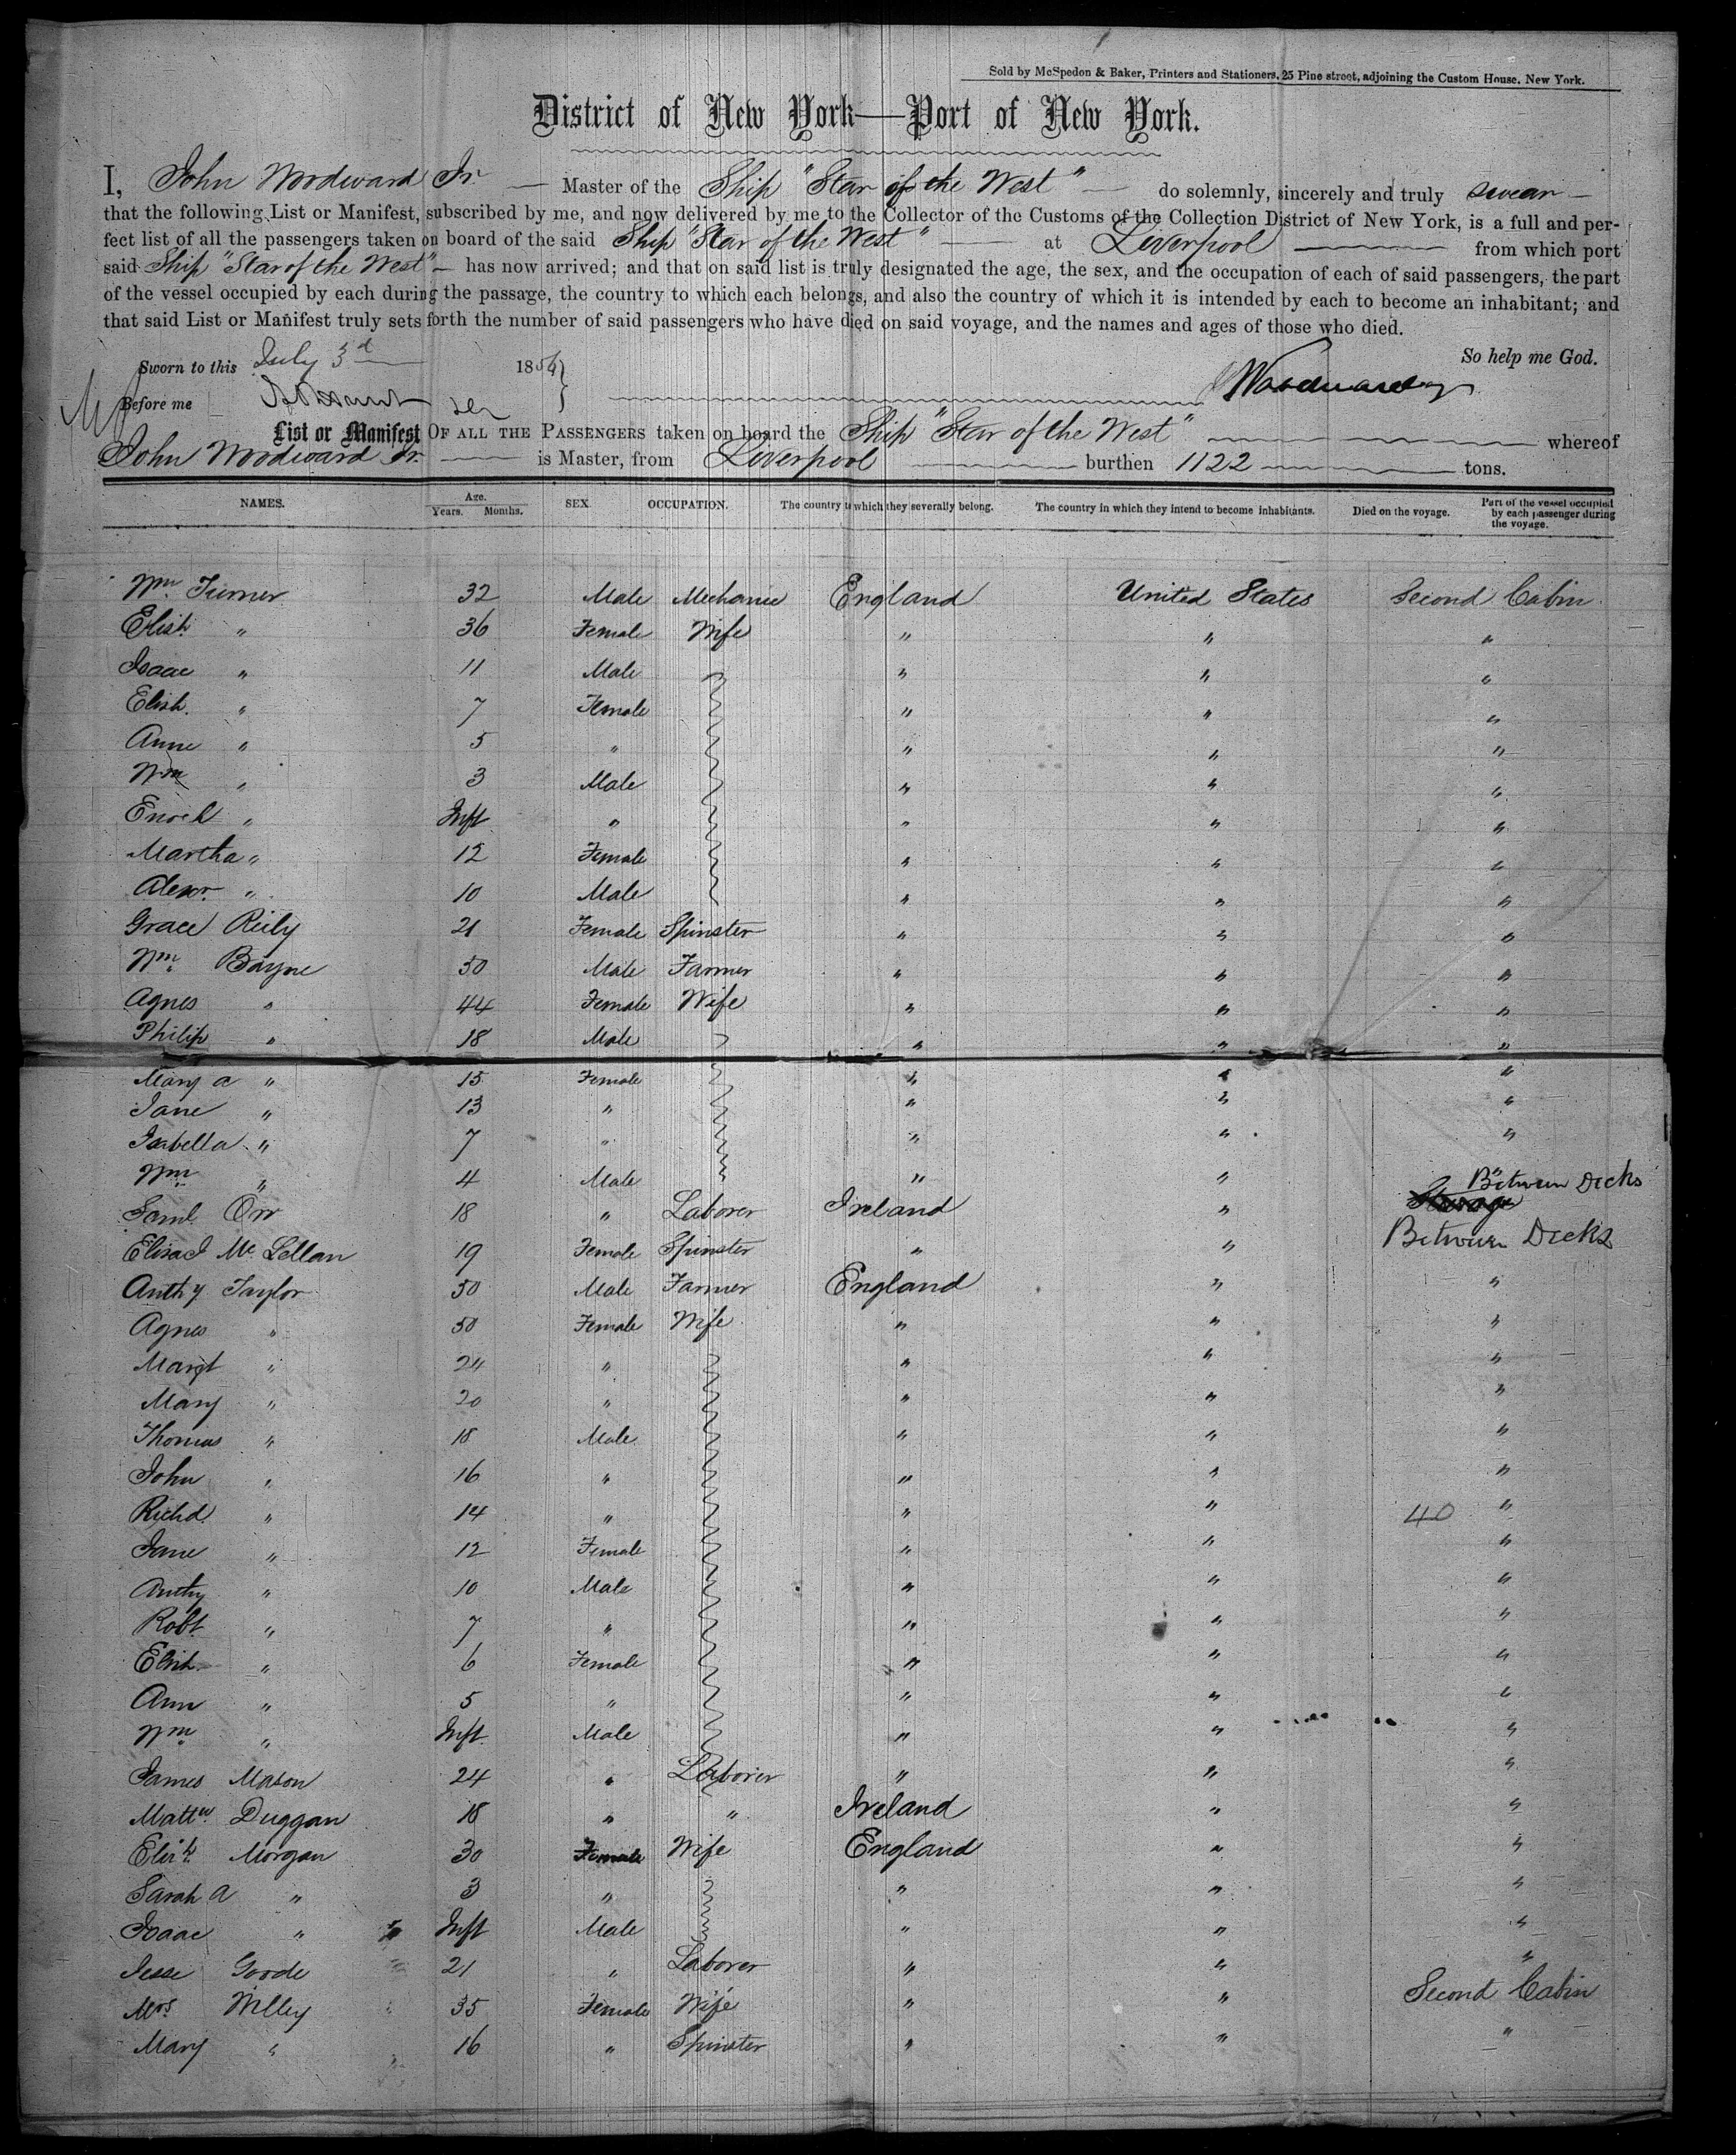 Sold by McSpedon & Baker, Printers and Stationers, 25 Pine street, adjoining the Custom House, New York.
District of New York—Port of New York.
I, John Woodward Jr. — Master of the Ship "Star of the West" — do solemnly, sincerely and truly swear —
that the following List or Manifest, subscribed by me, and now delivered by me to the Collector of the Customs of the Collection District of New York, is a full and per-
fect list of all the passengers taken on board of the said Ship "Star of the West" — at Liverpool — from which port
said Ship "Star of the West" — has now arrived; and that on said list is truly designated the age, the sex, and the occupation of each of said passengers, the part
of the vessel occupied by each during the passage, the country to which each belongs, and also the country of which it is intended by each to become an inhabitant; and
that said List or Manifest truly sets forth the number of said passengers who have died on said voyage, and the names and ages of those who died.
So help me God.
Sworn to this July 3d 1854
Before me
J Woodward Jr
List or Manifest OF ALL THE PASSENGERS taken on board the Ship "Star of the West" whereof
John Woodward Jr. — is Master, from Liverpool — burthen 1122 — tons.
NAMES. Age. Years. Months. SEX. OCCUPATION. The country to which they severally belong. The country in which they intend to become inhabitants. Died on the voyage. Part of the vessel occupied by each passenger during the voyage.
Wm. Turner 32 Male Mechanic England United States Second Cabin
Elizh. " 36 Female Wife " " "
Isaac " 11 Male " " "
Elizh. " 7 Female " " "
Anne " 5 " " " "
Wm " 3 Male " " "
Enoch " Inft " " " "
Martha " 12 Female " " "
Alexr. " 10 Male " " "
Grace Reily 21 Female Spinster " " "
Wm. Bayne 50 Male Farmer " " "
Agnes " 44 Female Wife " " "
Philip " 18 Male " " "
Mary a " 15 Female " " "
Jane " 13 " " " "
Isabella " 7 " " " "
Wm. " 4 Male " " "
Saml. Orr 18 " Laborer Ireland " Steerage Between Decks
Eliza J Mc Lellan 19 Female Spinster " " Between Decks
Anthy Taylor 50 Male Farmer England " "
Agnes " 50 Female Wife " " "
Margt " 24 " " " "
Mary " 20 " " " "
Thomas " 18 Male " " "
John " 16 " " " "
Richd. " 14 " " " 40 "
Jane " 12 Female " " "
Anthy " 10 Male " " "
Robt. " 7 " " " "
Elizh. " 6 Female " " "
Ann " 5 " " " "
Wm. " Inft. Male " " "
James Mason 24 " Laborer " " "
Mattw. Duggan 18 " " Ireland " "
Elizh. Morgan 30 Female Wife England " "
Sarah A " 3 " " " "
Isaac " Inft Male " " "
Jesse Goode 21 " Laborer " " "
Mrs. Willey 35 Female Wife " " Second Cabin
Mary " 16 " Spinster " " "